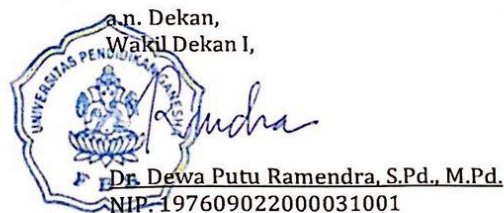 a.n. Dekan,
Wakil Dekan I,
UNIVERSITAS PENDIDIKAN GANESHA
Dr. Dewa Putu Ramendra, S.Pd., M.Pd.
NIP. 197609022000031001